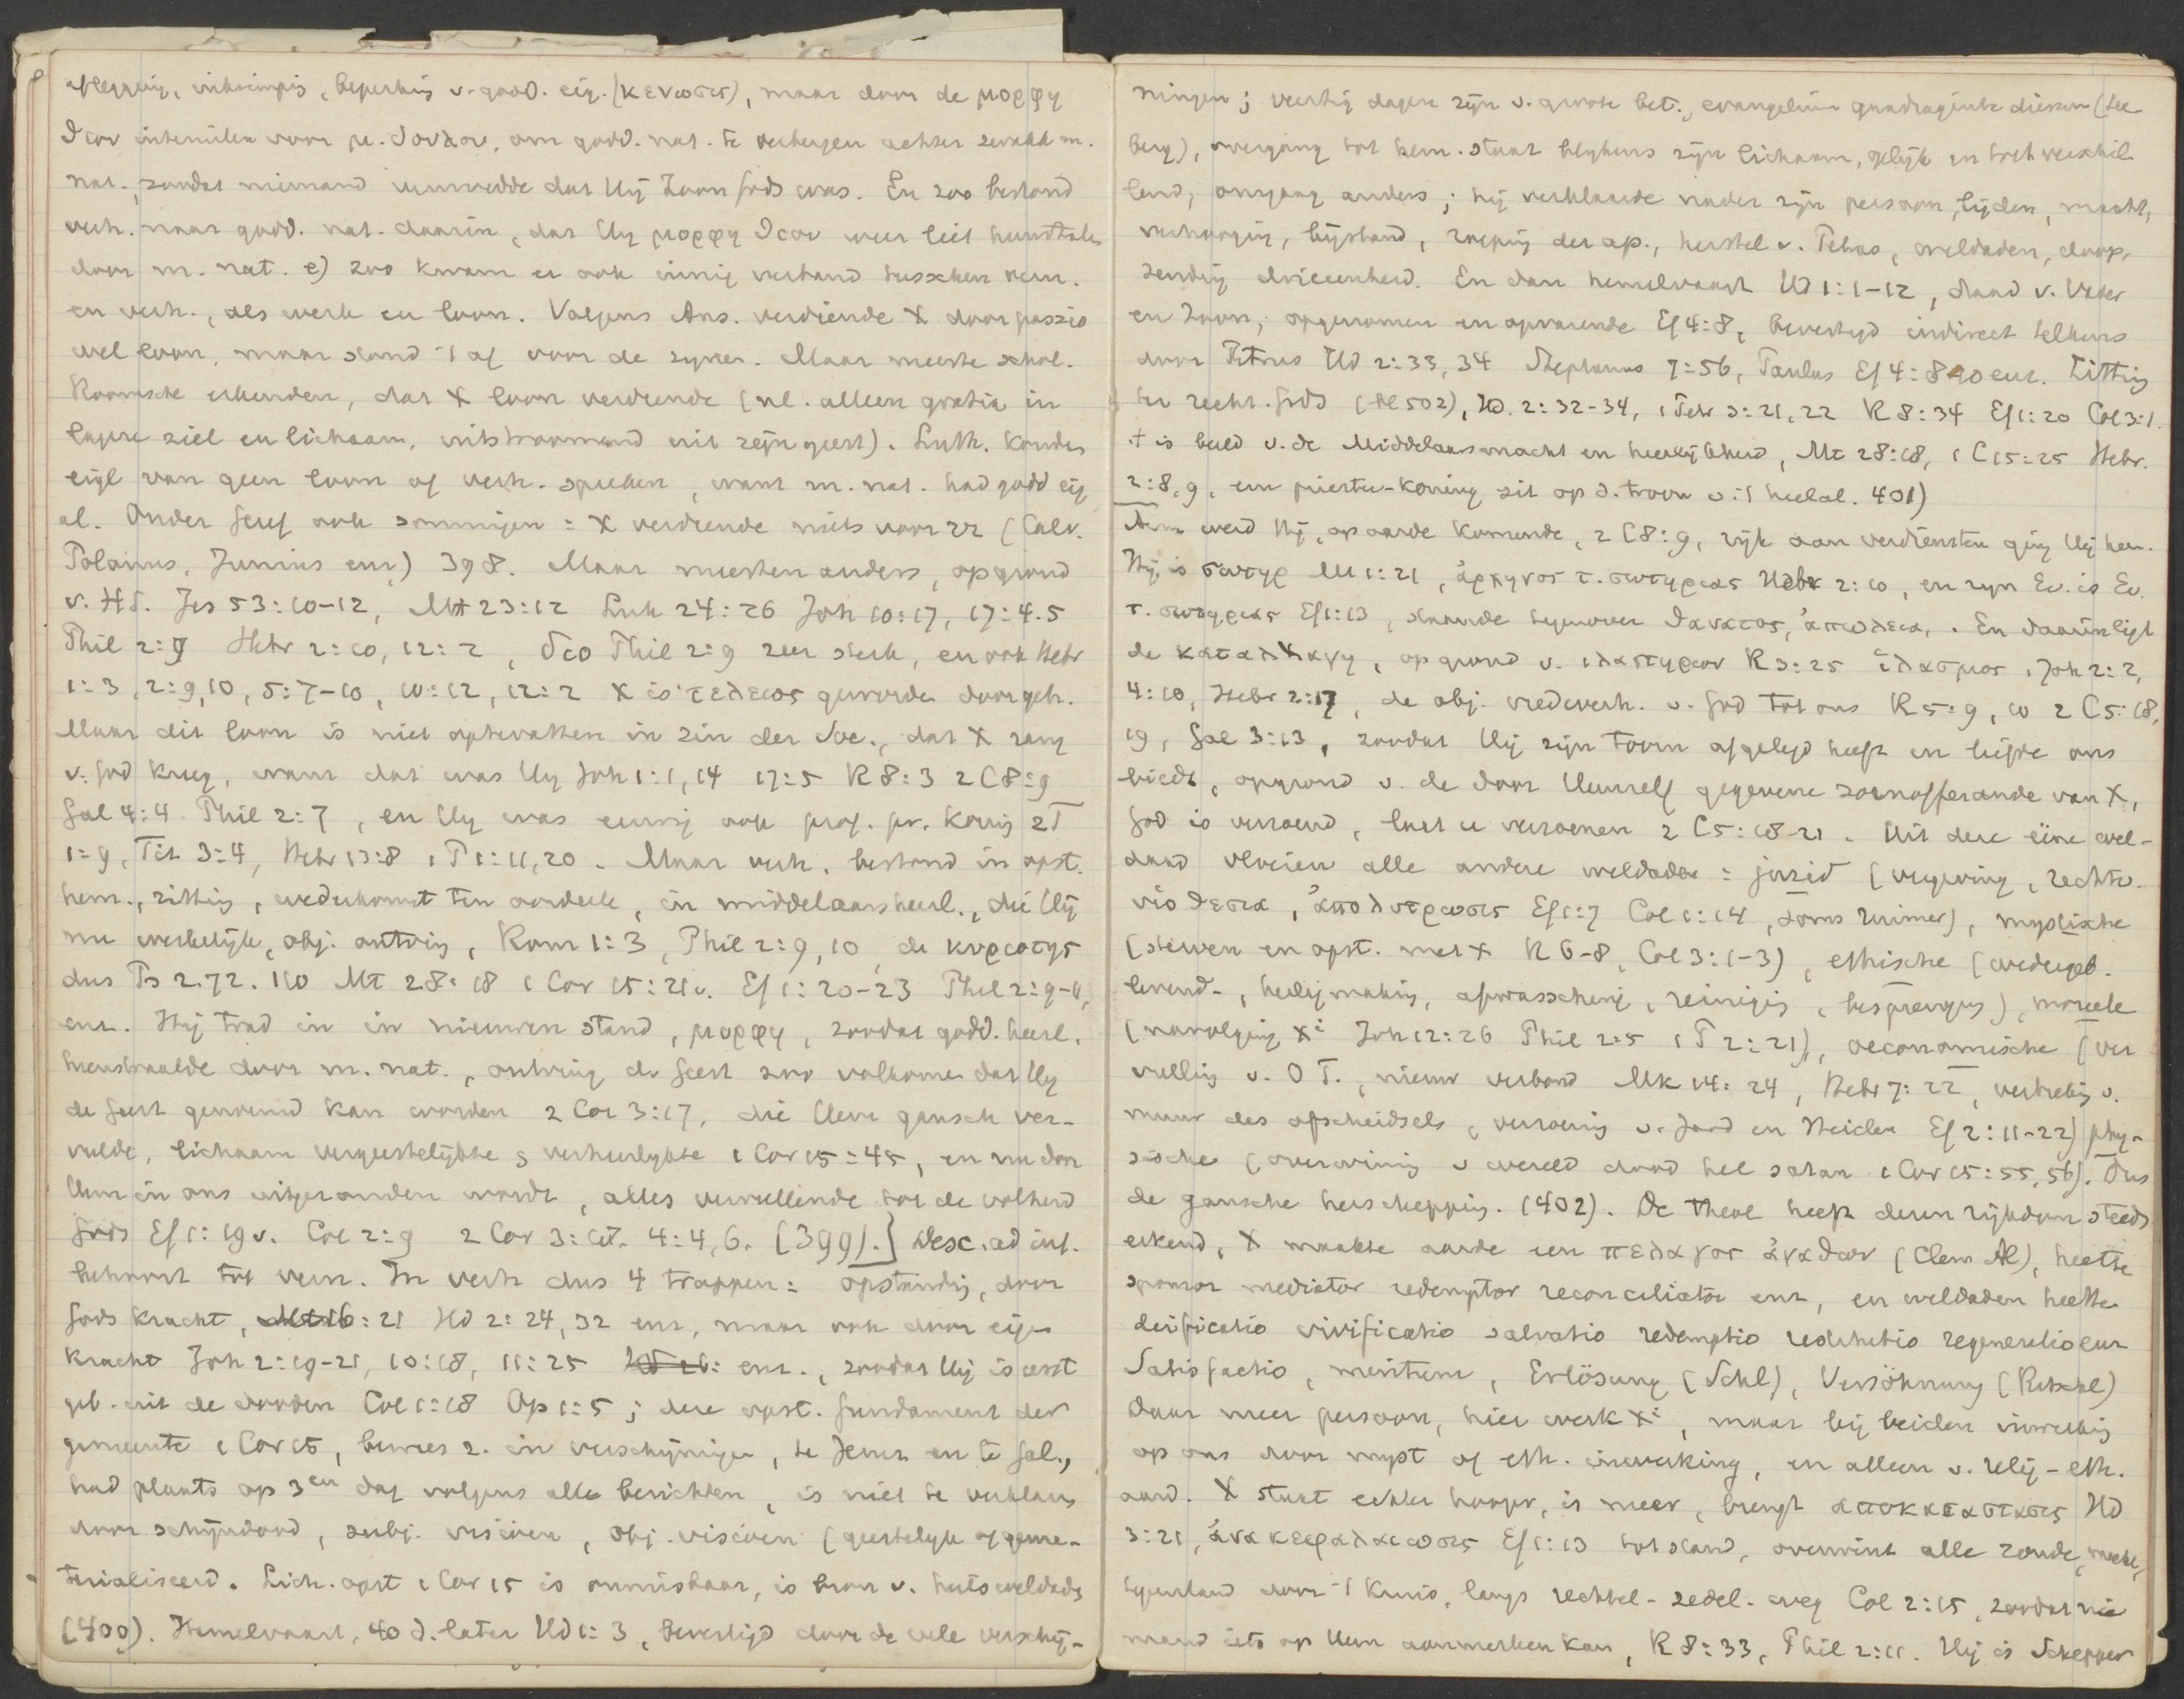 aflegging, inkrimping, beperking v. godd. eig. (κενωσις), maar door de μορφη
θεου interuilen voor μ. δουλου, om godd. nat. te verbergen achter zwakke m.
nat., zoodat niemand vermoedde dat Hij Zoon Gods was. En zoo bestond
verh. naar godd. nat. daarin, dat Hij μορφη θεου weer liet doorstralen
door m. nat. e) zoo kwam er ook innig verband tusschen vern.
en verh., als werk en loon. Volgens Ans. verdiende X door passio
wel loon, maar stond 't af voor de zijnen. Maar meeste schol.
Roomsche erkenden, dat X loon verdiende (nl. alleen gratia in
lagere ziel en lichaam, uitstroomend uit zijn geest). Luth. konden
eigl van geen loon of verh. spreken, want m. nat. had godd eig
al. Onder Geref ook sommigen: X verdiende niets voor zz (Calv.
Polanus, Junius enz) 398. Maar meesten anders, op grond
v. H.S. Jes 53:10-12, Mt 23:12 Luk 24:26 Joh 10:17, 17:4.5
Phil 2:9 Hebr 2:10, 12:2, διο Phil 2:9 zeer sterk, en ook Hebr
1:3, 2:9,10, 5:7-10, 10:12, 12:2 X is τελειος geworden door geh.
Maar dit loon is niet optevatten in zin der Soc., dat X rang
v. God kreeg, want dat was Hij Joh 1:1,14 17:5 R 8:3 2 C 8:9
Gal 4:4 Phil 2:7, en Hij was eeuwig ook prof. pr. koning 2T
1:9, Tit 3:4, Hebr 13:8 1 P 1:11,20. Maar verh. bestond in opst.
hem., zitting, wederkomst ten oordeele, in middelaarsheerl., die Hij
nu werkelijk, obj. ontving, Rom 1:3, Phil 2:9,10, de κυριοτης
dus Ps 2.72.110 Mt 28:18 1 Cor 15:21v. Ef 1:20-23 Phil 2:9-11,
enz. Hij trad in in nieuwen stand, μορφη, zoodat godd. heerl.
heenstraalde door m. nat., ontving de Geest zoo volkomen dat Hij
de Geest genoemd kan worden 2 Cor 3:17, die Hem gansch ver-
vulde, lichaam vergeestelijkte & verheerlijkte 1 Cor 15:45, en nu door
Hem in ons uitgezonden wordt, alles vervullende tot de volheid
Gods Ef 1:19v. Col 2:9 2 Cor 3:17. 4:4,6. (399).] Desc. ad inf.
behoort tot vern. In verh dus 4 trappen: opstanding, door
Gods kracht, Mt 16:21 HD 2:24,32 enz, maar ook door eigen
kracht Joh 2:19-21, 10:18, 11:25 enz., zoodat Hij is eerst
geb. uit de dooden Col 1:18 Op 1:5; deze opst. fundament der
gemeente 1 Cor 15, bewees z. in verschijningen, te Jeruz en te Gal.,
had plaats op 3en dag volgens alle berichten, is niet te verklaren
door schijndood, subj. visioen, obj. visioen (geestelijk of gema-
terialiseerd. Lich. opst 1 Cor 15 is onmisbaar, is bron v. heilsweldaden
(400). Hemelvaart, 40 d. later HD 1:3, bevestigd door de vele verschij-
ningen; veertig dagen zijn v. groote bet., evangelium quadraginta dierum (See
berg), overgang tot hem. staat blijkens zijn lichaam, gelijk en toch verschil-
lend, omgang anders; hij verklaarde nader zijn persoon, lijden, macht,
verhooging, bijstand, roeping der ap., herstel v. Petrus, weldaden, doop,
zending drieeenheid. En dan hemelvaart HD 1:1-12, daad v. Vader
en Zoon, opgenomen en opvarende Ef 4:8, bevestigd indirect telkens
door Petrus HD 2:33,34 Stephanus 7:56, Paulus Ef 4:8-10 enz. Zitting
ter recht. Gods (SE 502), HD. 2:32-34, 1 Petr 3:21,22 R 8:34 Ef 1:20 Col 3:1.
't is beeld v. de Middelaarsmacht en heerlijkheid, Mt 28:18, 1 C 15:25 Hebr.
2:8,9, een priester-koning zit op d. troon v. 't heelal. 401)
Arm werd Hij, op aarde komende, 2 C 8:9, rijk aan verdiensten ging Hij heen.
Hij is σωτηρ Mt 1:21, ἀρχηγος τ. σωτηριας Hebr 2:10, en zijn Ev. is Ev.
τ. σωτηριας Ef 1:13, staande tegenover θανατος, ἀπωλεια. En daarin ligt
de καταλλαγη, op grond v. ιλαστηριον R 3:25 ἱλασμος 1 Joh 2:2,
4:10, Hebr 2:17, de obj. vredeverh. v. God tot ons R 5:9,10 2 C 5:18,
19, Gal 3:13, zoodat Hij zijn toorn afgelegd heeft en liefde ons
biedt, op grond v. de door Hemzelf gegevene zoenofferande van X,
God is verzoend, laat u verzoenen 2 C 5:18-21. Uit deze eene wel-
daad vloeien alle andere weldaden: jurid (vergeving, rechtv.
υἱοθεσια, ἀπολυτρωσις Ef 1:7 Col 1:14, soms ruimer), mystische
(sterven en opst. met X R 6-8, Col 3:1-3), ethische (wedergeb.
levend-, heiligmaking, afwassching, reiniging, besprenging), moreele
(navolging Xi Joh 12:26 Phil 2:5 1 P 2:21), oeconomische (ver
vulling v. O T., nieuw verbond Mk 14:24, Hebr 7:22, verbreking v.
muur des afscheidsels, verzoening v. Jood en Heiden Ef 2:11-22) phy-
sische (overwinning v wereld dood hel satan 1 Cor 15:55,56). Dus
de gansche herschepping. (402). De theol heeft dezen rijkdom steeds
erkend, X maakte aarde een πελαγος ἀγαθων (Clem Al), heette
sponsor mediator redemptor reconciliator enz, en weldaden heetten
deificatio vivificatio salvatio redemptio restitutio regeneratio enz
Satisfactio, meritum, Erlösung (Schl), Versöhnung (Ritschl)
Daar meer persoon, hier werk Xi, maar bij beiden inwerking
op ons door myst of eth. inwerking, en alleen v. relig-eth.
aard. X staat echter hooger, is meer, brengt αποκατασταsις HD
3:21, ἀνακεφαλαιωσις Ef 1:13 tot stand, overwint alle zonde, macht,
tegenstand door 't kruis, langs rechtel-zedel. weg Col 2:15, zoodat nie
mand iets op Hem aanmerken kan, R 8:33, Phil 2:11. Hij is Schepper